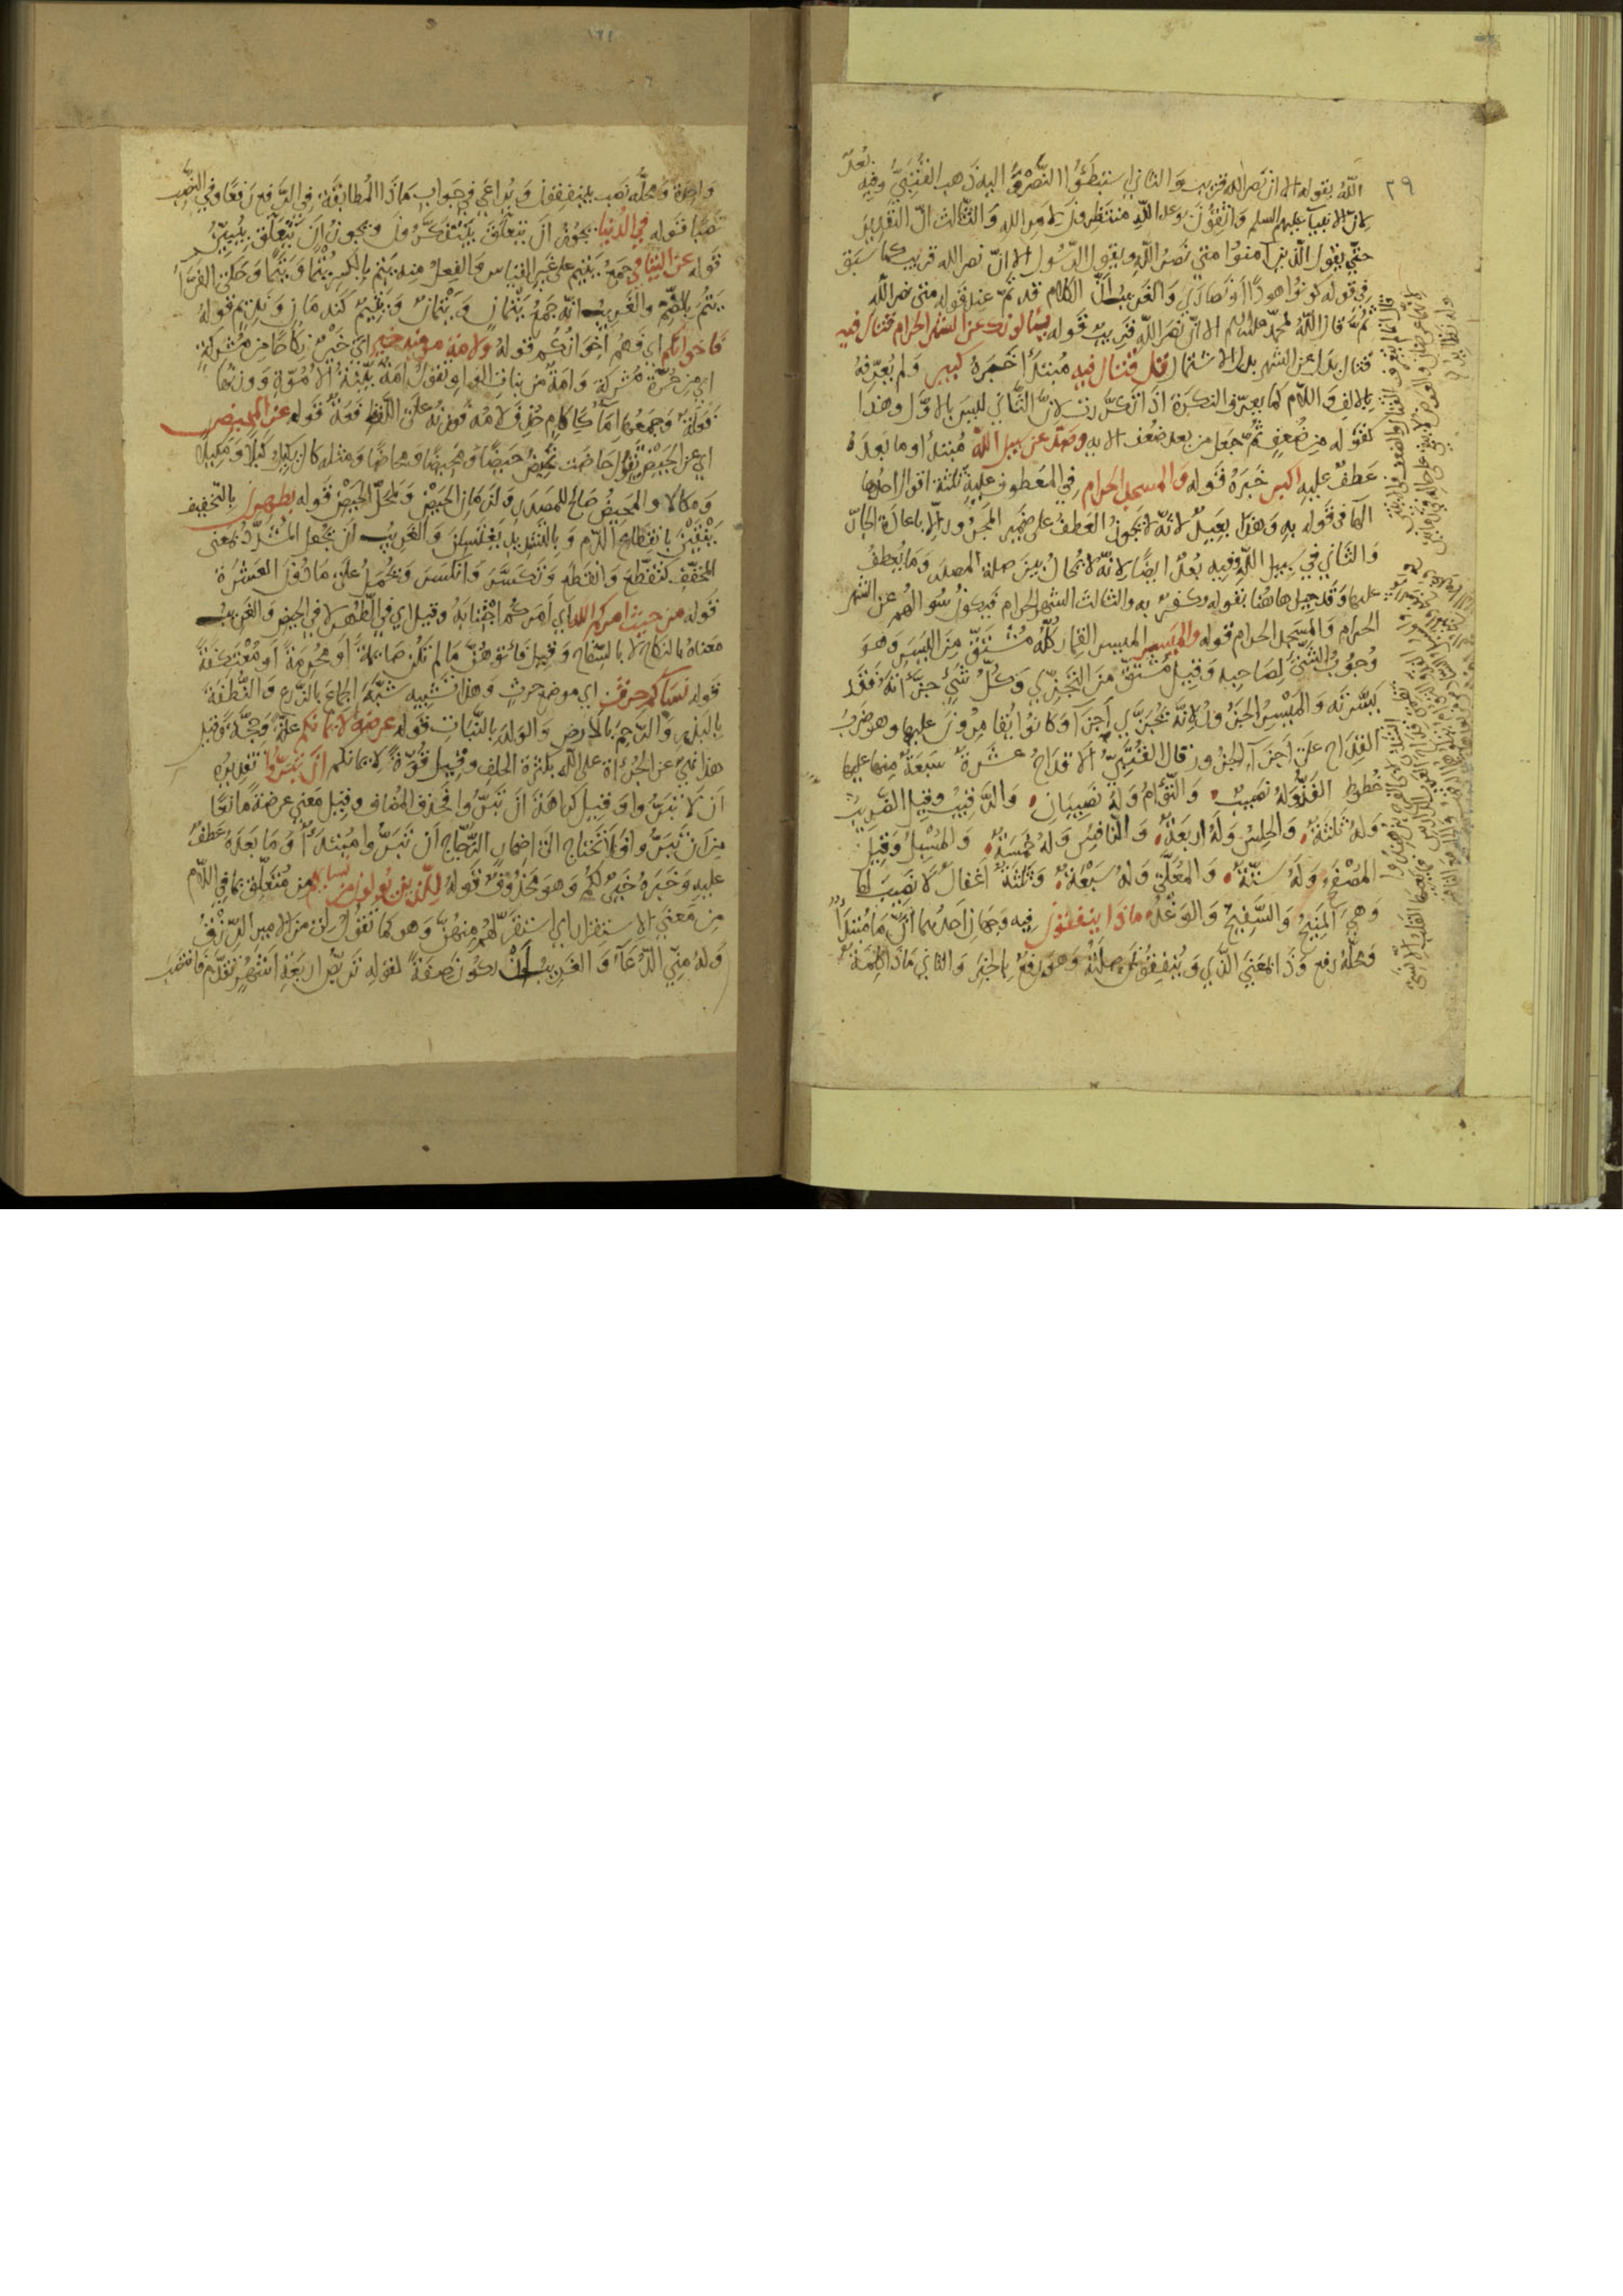 ٢٩
الله بقوله الا ان نصر الله قريب والثاني استبطئوا النصر واليه ذهب القتبي وفيه بعد
لان الانبياء عليهم السلم واثقون بوعد الله منتظرون لامر الله والثالث ان التقدير
حتى يقول الذين آمنوا متى نصر الله ويقول الرسول الا ان نصر الله قريب كما سبق
في قوله كونوا هودا او نصارى والغريب ان الكلام قد تم عند قوله متى نصر الله
ثم قال الله لمحمد عليه السلم الا ان نصر الله قريب قوله يسألونك عن الشهر الحرام قتال فيه
قتال بدل عن الشهر بدل الاشتمال قل قتال فيه مبتدأ خبره كبير ولم يعرفه
بالالف واللام كما يعرف النكرة اذا تكررت لان الثاني ليس بالاول وهذا
كقوله من ضعف ثم جعل من بعد ضعف الاية وصد عن سبيل الله مبتدأ وما بعده
عطف عليه اكبر خبره قوله والمسجد الحرام في المعطوف عليه ثلثة اقوال احدها
الهاء في قوله به وهذا بعيد لانه لا يجوز العطف على ضمير المجرور الا باعادة الجار
والثاني في سبيل الله وفيه بعد ايضا لانه لا يحال بين صلة المصدر وما يعطف
عليها وقد حيل هاهنا بقوله وكفر به والثالث الشهر الحرام فيكون سؤالهم عن الشهر
الحرام والمسجد الحرام قوله والميسر الميسر القمار كله مشتق من اليسر وهو
وجوب الشيء لصاحبه وقيل مشتق من التجزي وكل شيء جزأته فقد
يسرته والميسر الجزور لانه يجزي اجزاء وكانوا يقامرون عليها وهو ضرب
القداح على اجزاء الجزور قال القتبي الاقداح عشرة سبعة منها عليها
خطوط الفذ وله نصيب والتوأم وله نصيبان والرقيب وقيل الضريب
وله ثلثة والحلس وله اربعة والنافس وله خمسة والمسبل وقيل
المصفح وله ستة والمعلى وله سبعة وثلثة اغفال لا نصيب لها
وهي المنيح والسفيح والوغد ماذا ينفقون فيه وجهان احدهما ان ما مبتدأ
ومحله رفع وذا بمعنى الذي وينفقون صلته وهو رفع بالخبر والثاني ماذا كلمة
واحدة ومحله نصب بينفقون ويراعى في جواب ماذا المطابقة في الرفع رفعا وفي النصب
نصبا قوله في الدنيا يجوز ان يتعلق بيتفكرون ويجوز ان يتعلق بيبين
قوله عن اليتامى جمع يتيم على غير القياس والفعل منه يتم بالكسر يتما ويتما وحكى الفراء
يتم بالضم والغريب انه جمع يتمان ويتمان ويتيم كندمان ونديم قوله
فاخوانكم اي فهم اخوانكم قوله ولامة مومنة خير اي خير نكاحا من مشركة
اي من حرة مشركة وامة من بنات الواو تقول امة بينة الاموة ووزنها
فعلة وجمعها اماء كاكام حذف لامه فوزنه على اللفظ فعة قوله عن المحيض
اي عن الحيض تقول حاضت تحيض حيضا ومحيضا ومحاضا ومثله كال يكيل كيلا ومكيلا
ومكالا والمحيض صالح للمصدر ولزمان الحيض ولمحل الحيض قوله يطهرن بالتخفيف
ينقين بانقطاع الدم وبالتشديد يغتسلن والغريب ان يجعل المشدد بمعنى
المخفف كتقطع وانقطع وتكسر وانكسر ويحمل على ما دون العشرة
قوله من حيث امركم الله اي امركم اجتنابه وقيل اي في الطهر لا في الحيض والغريب
معناه بالنكاح لا بالسفاح وقيل فأتوهن ما لم تكن صائمة او محرمة او معتكفة
قوله نساكم حرث اي موضع حرث وهذا تشبيه شبه الجماع بالزرع والنطفة
بالبذر والرحم بالارض والولد بالنبات قوله عرضة لايمانكم علة وحجة وقيل
هذا نهي عن الجرأة على الله بكثرة الحلف وقيل قوة لايمانكم ان تبروا تقديره
ان لا تبروا وقيل كراهة ان تبروا فحذف المضاف وقيل معنى عرضة مانعا
من ان تبروا فلا تحتاج الى اضمار الزجاج ان تبروا مبتدأ وما بعده عطف
عليه وخبره خير لكم وهو محذوف قوله للذين يولون من نسائهم من متعلق بما في اللام
من معنى الاستقرار اي استقر لهم منهن وهو كما تقول لك من الامير الرزق
وله مني الدعاء والغريب ان يكون صفة لقوله تربص اربعة اشهر تقدم فانتصب